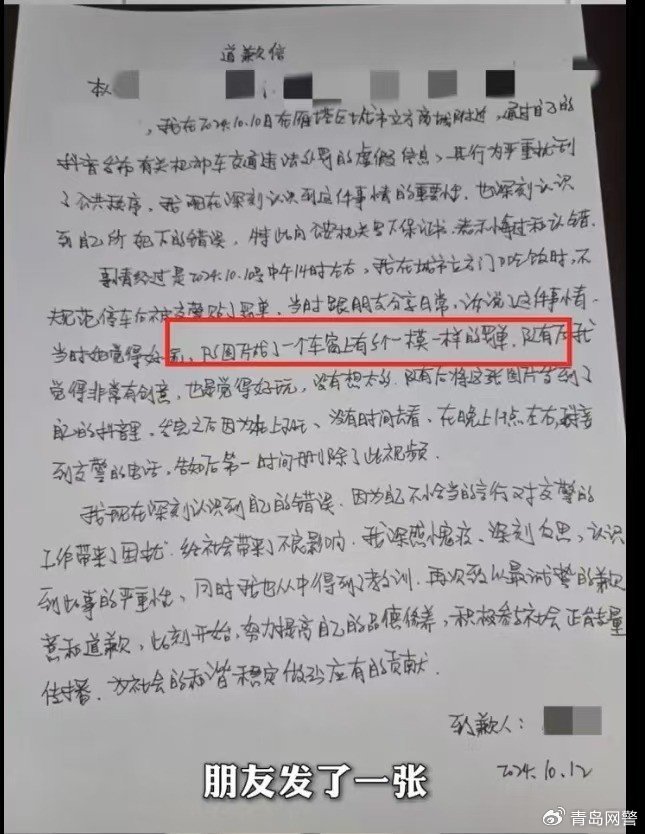 道歉信
本人
，我在2024.10.10日在雁塔区城市立方商城附近，通过自己的
抖音发布有关机动车交通违法处罚的虚假信息，其行为严重扰乱到
了公共秩序。我现在深刻认识到这件事情的重要性，也深刻认识
到自己所犯下的错误，特此向公安机关写下保证书，表示悔过和认错。
事情经过是2024.10.10号中午14时左右，我在城市立方门口吃饭时，不
规范停车后被交警贴了罚单，当时跟朋友分享日常，诉说了这件事情。
当时她觉得好 ，P图片给了一个车窗上有5个一模一样的罚单，随后我
觉得非常有创意，也是觉得好玩，没有想太多，随后将这张图片发到了
自己的抖音里，发完之后因为在上班，没有时间去看，在晚上 点左右，接
到交警的电话，告知后第一时间删除了此视频。
我现在深刻认识到自己的错误，因为自己不恰当的言行对交警的
工作带来了困扰，给社会带来了不良影响，我深感愧疚，深刻反思，认识
到此事的严重性，同时我也从中得到了教训，再次致以最诚挚的歉
意和道歉，此刻开始，努力提高自己的品德修养，积极参与社会正能量
传播，为社会的和谐稳定做出应有的贡献。
致歉人：
2024.10.12
朋友发了一张
青岛网警